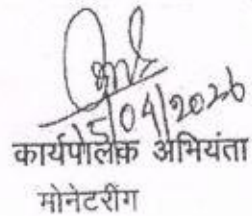 15/04/2026
कार्यपालक अभियंता
मोनेटरींग